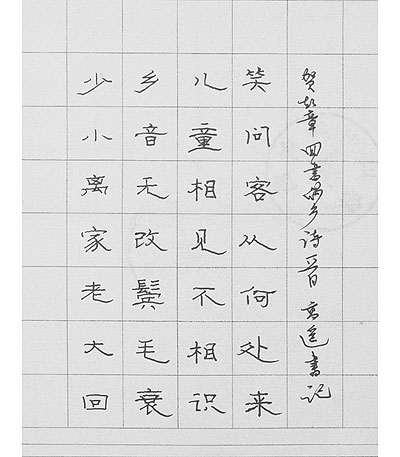 少小离家老大回
乡音无改鬓毛衰
儿童相见不相识
笑问客从何处来
贺知章回書偶乡诗書记